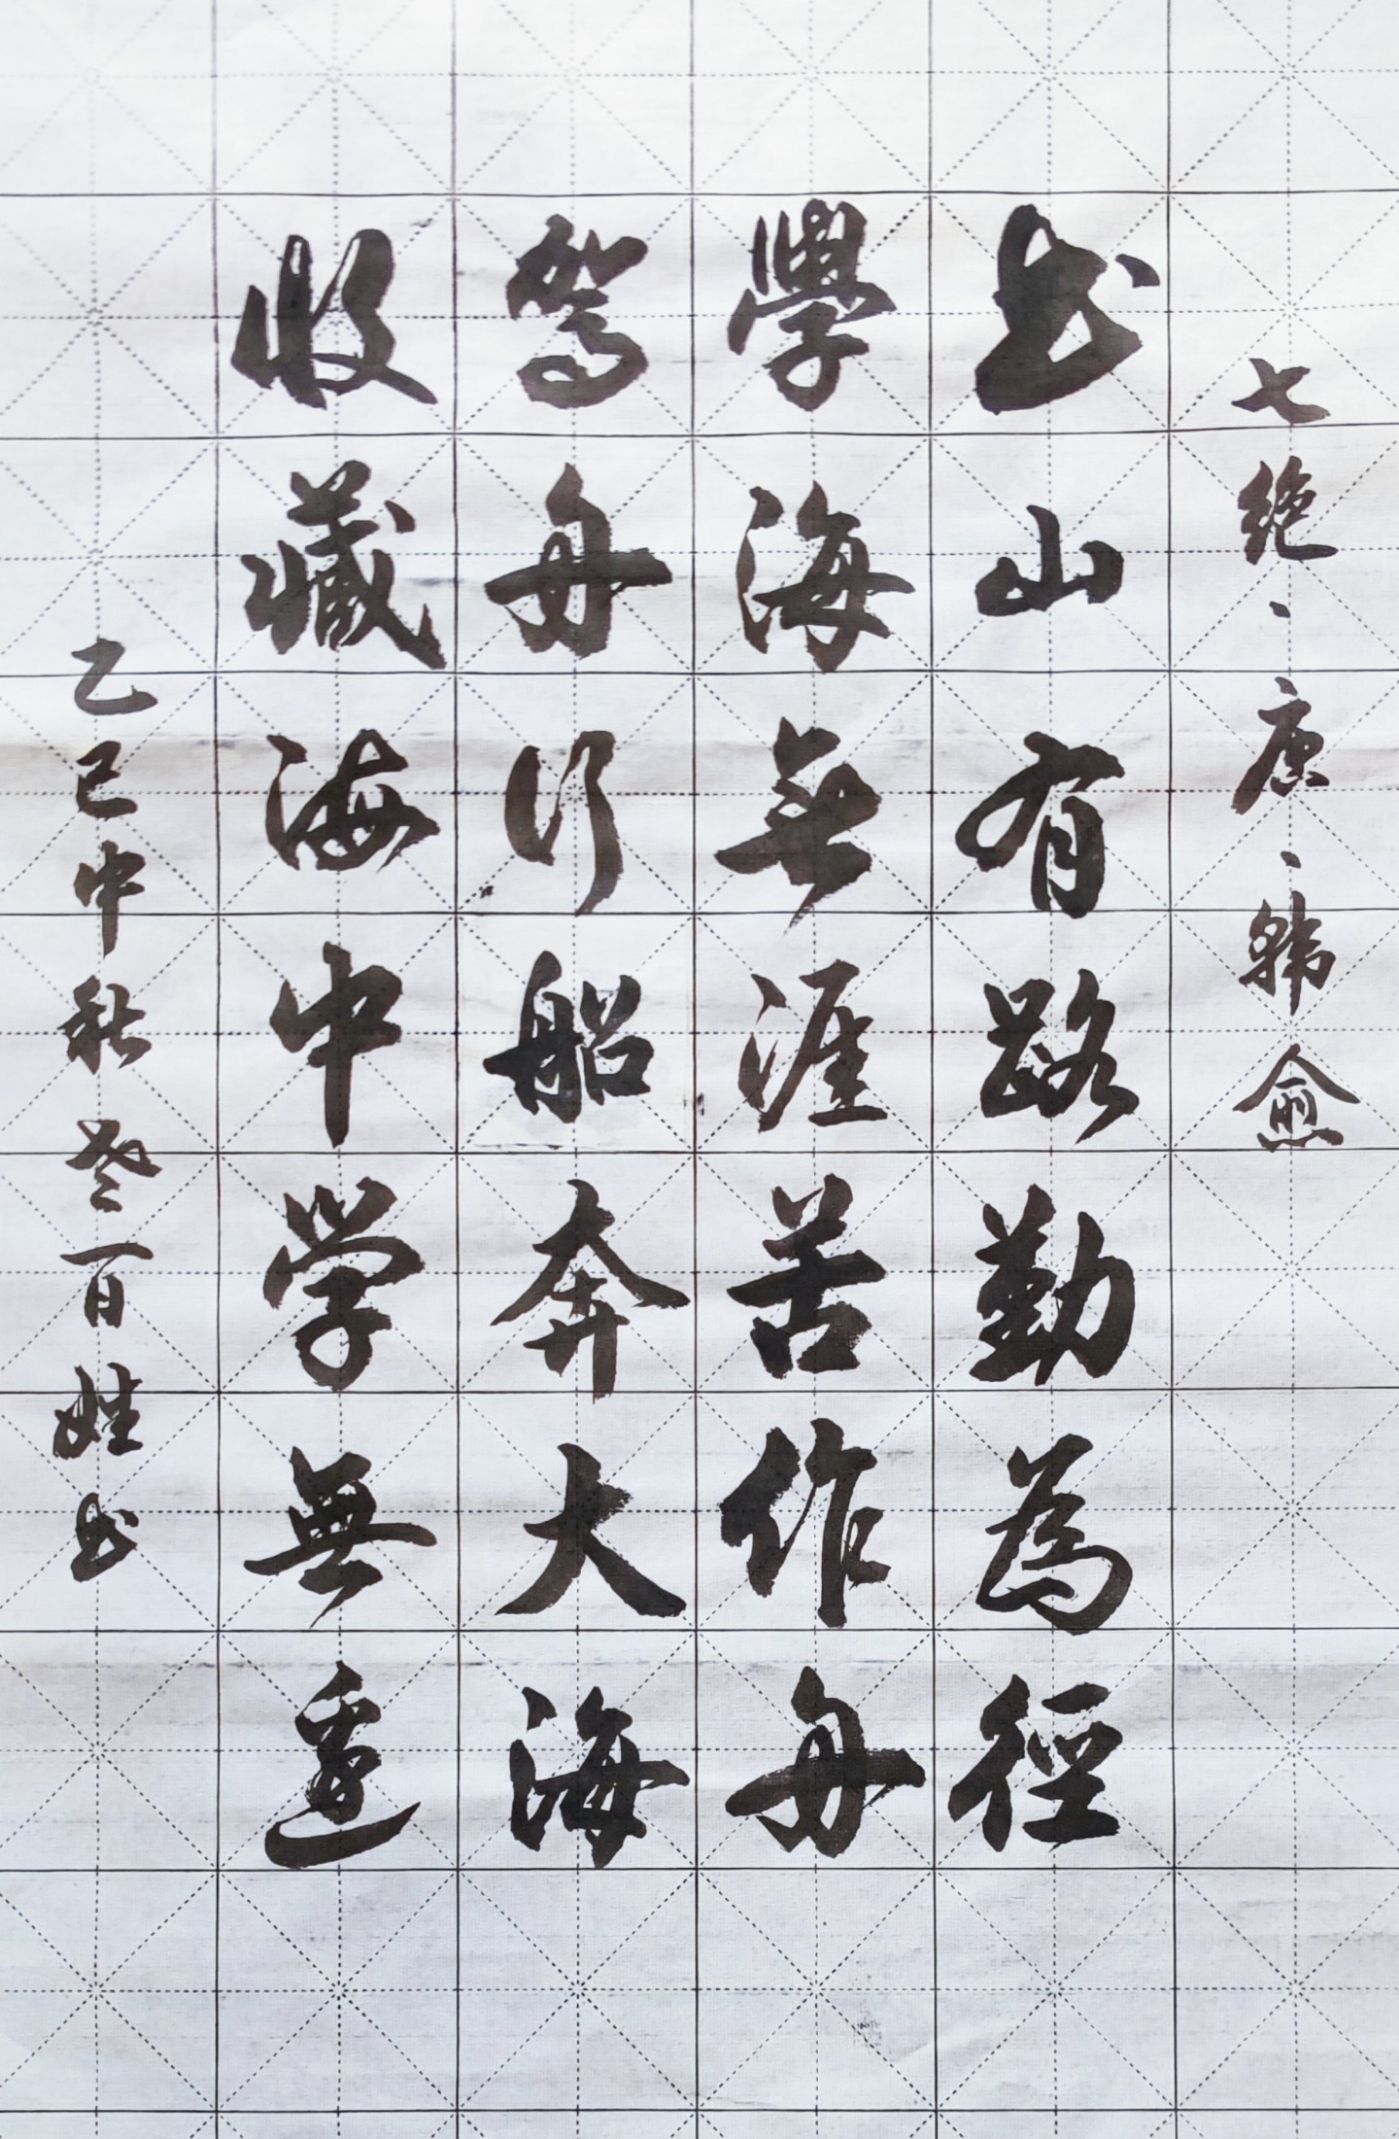 七绝、唐、韩愈
书山有路勤為徑
學海無涯苦作舟
驾舟行船奔大海
收藏海中学無邊
乙巳中秋老百姓书